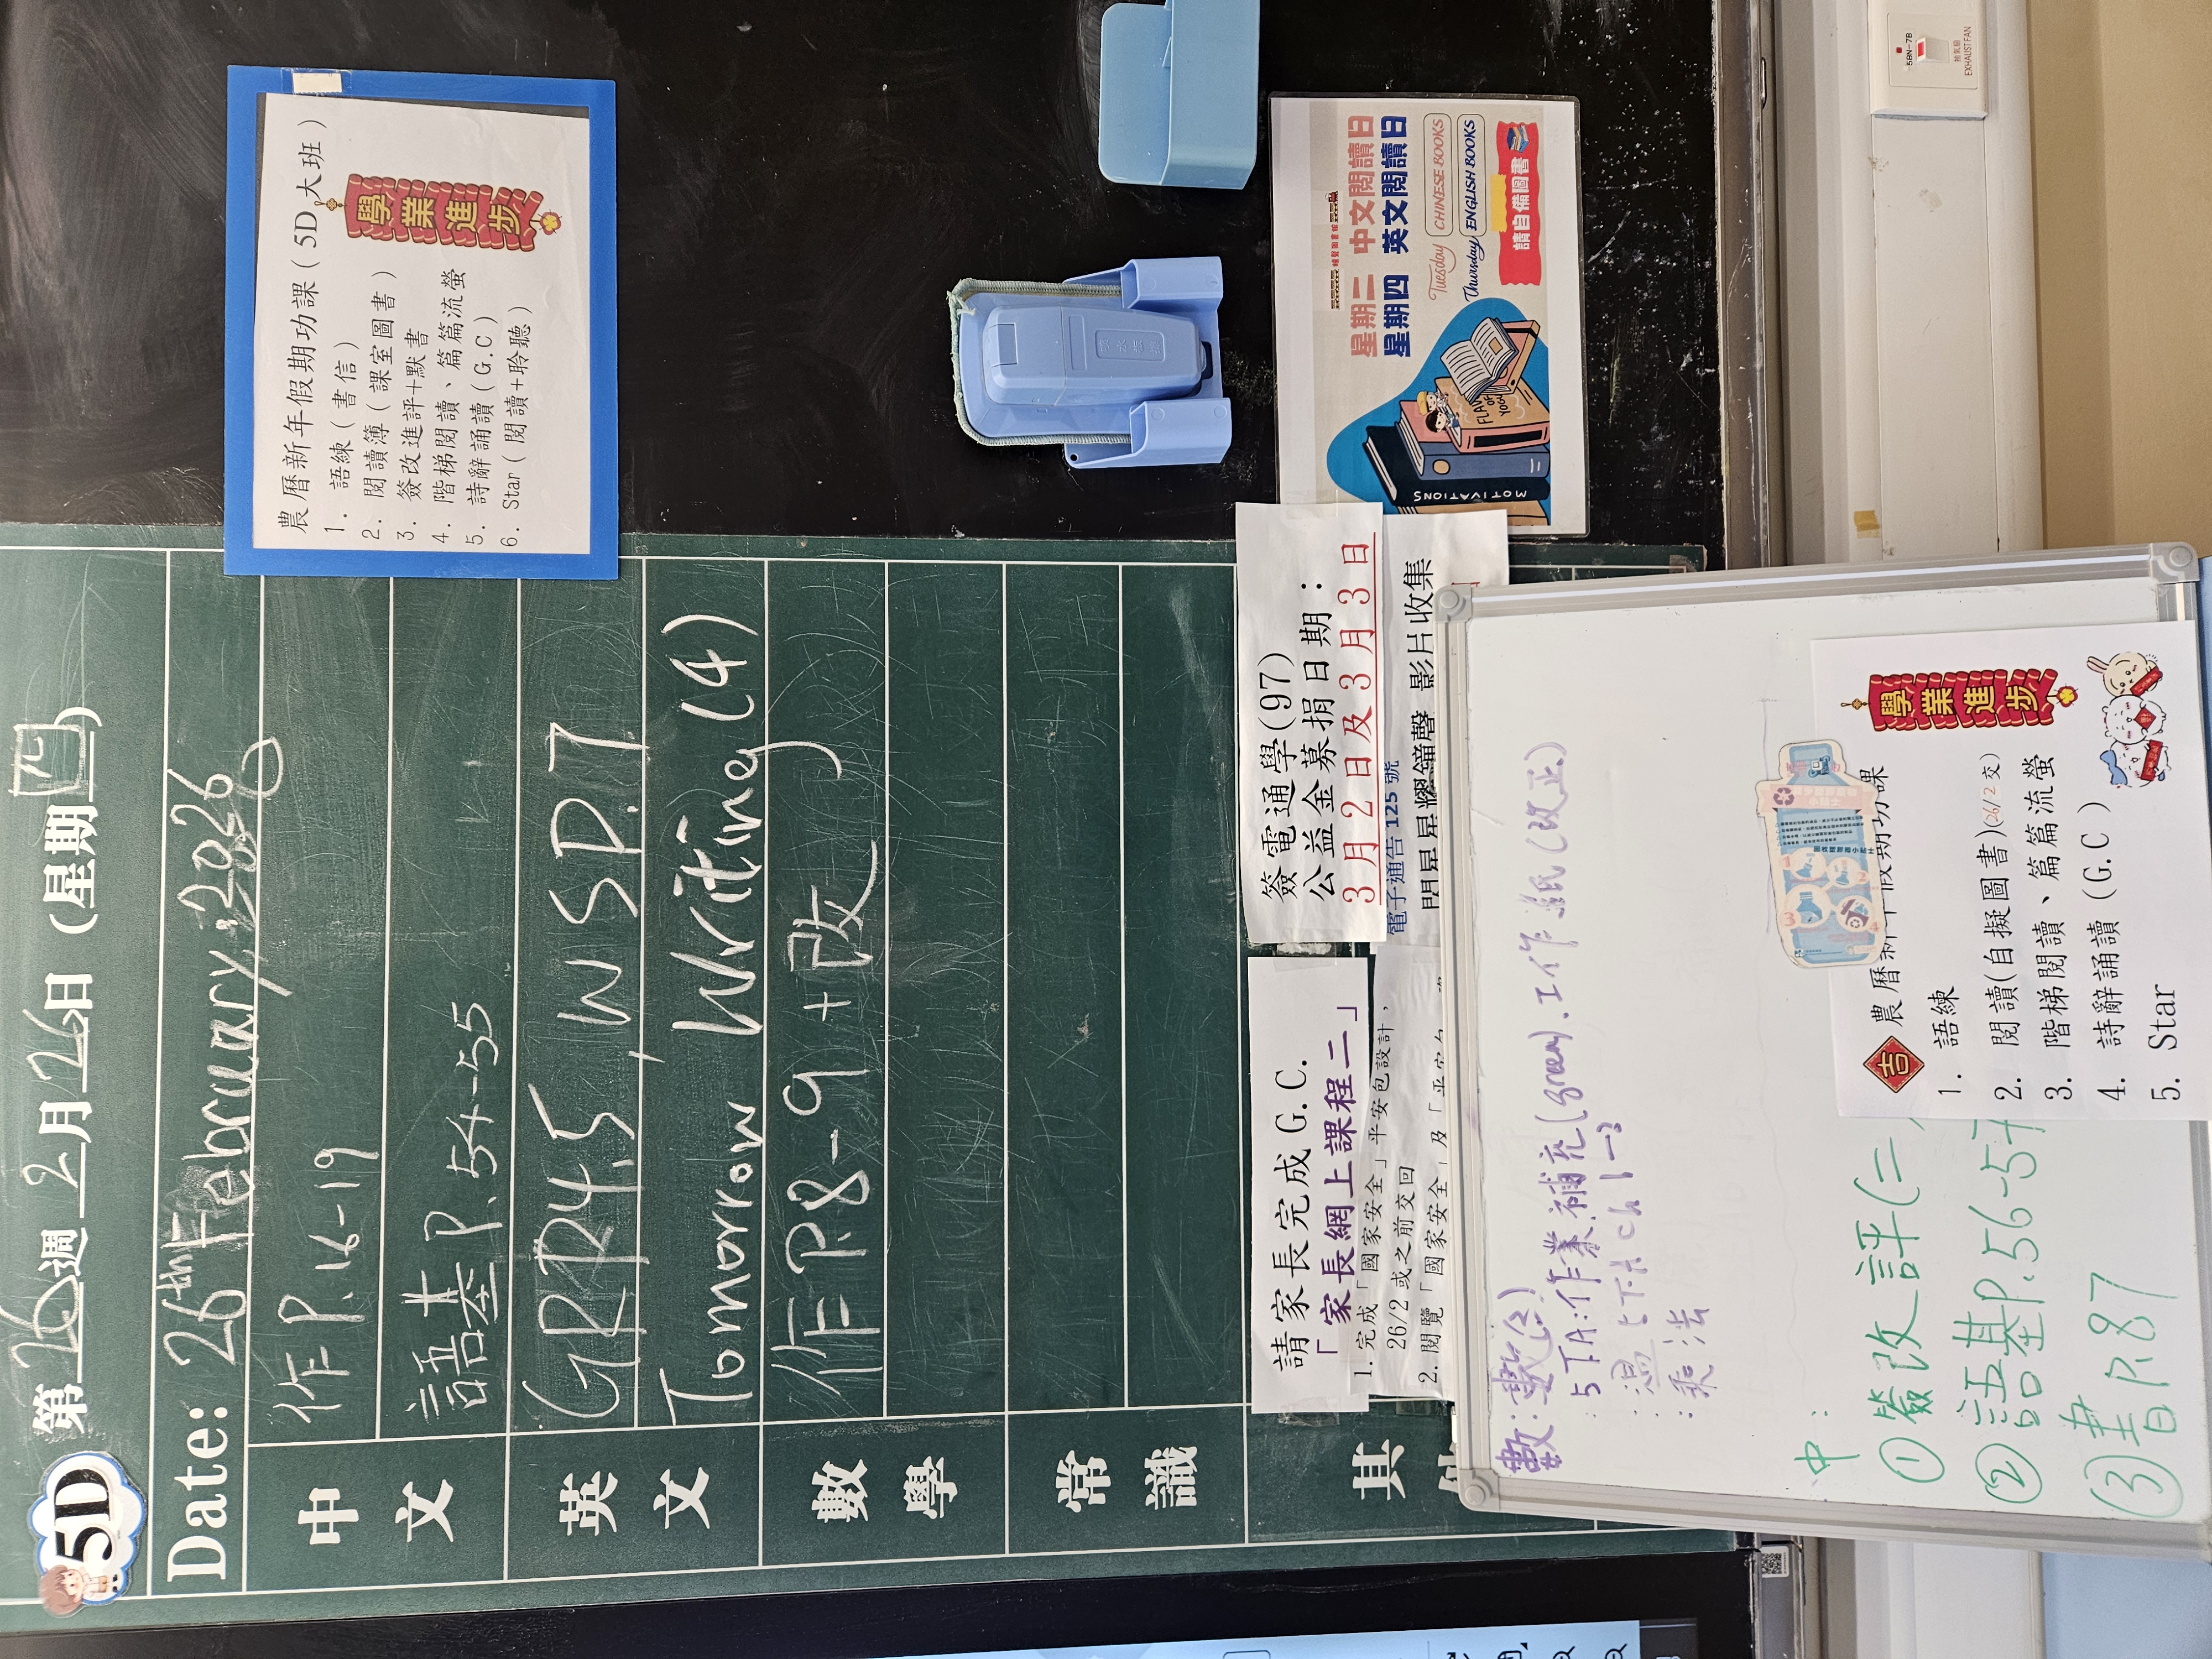 5D
第26週 2月26日 (星期四)
Date: 26th February, 2026
中文
作 P.16-19
語基 P.54-55
英文
GRP.4,5, WS P.7
Tomorrow Writing (4)
數學
作 P.8-9+改
常識
其
請家長完成 G.C.
「家長網上課程二」
1. 完成「國家安全」平安包設計,
26/2 或之前交回
2. 閱覽「國家安全」及「平安
簽電通學(97)
公益金募捐日期:
3月2日及3月3日
電子通告 125 號
閃星星耀鐘聲 影片收集
農曆新年假期功課(5D大班)
1. 語練(書信)
2. 閱讀簿(課室圖書)
3. 簽改進評+默書
4. 階梯閱讀、篇篇流螢
5. 詩辭誦讀(G.C)
6. Star(閱讀+聆聽)
學業進步
星期二 中文閱讀日
星期四 英文閱讀日
Tuesday CHINESE BOOKS
Thursday ENGLISH BOOKS
請自備圖書
MOTIVATIONS
數:
5TA:作業.補充(green).工作紙(改正)
:溫 ch 1-3
:乘法
中:
①簽改評(二
②語基P.56-57
③書P.87
吉
農曆新年假期功課
1. 語練
2. 閱讀(自擬圖書)(26/2交)
3. 階梯閱讀、篇篇流螢
4. 詩辭誦讀 (G.C)
5. Star
學業進步
5BN-7B
抽氣扇
EXHAUST FAN